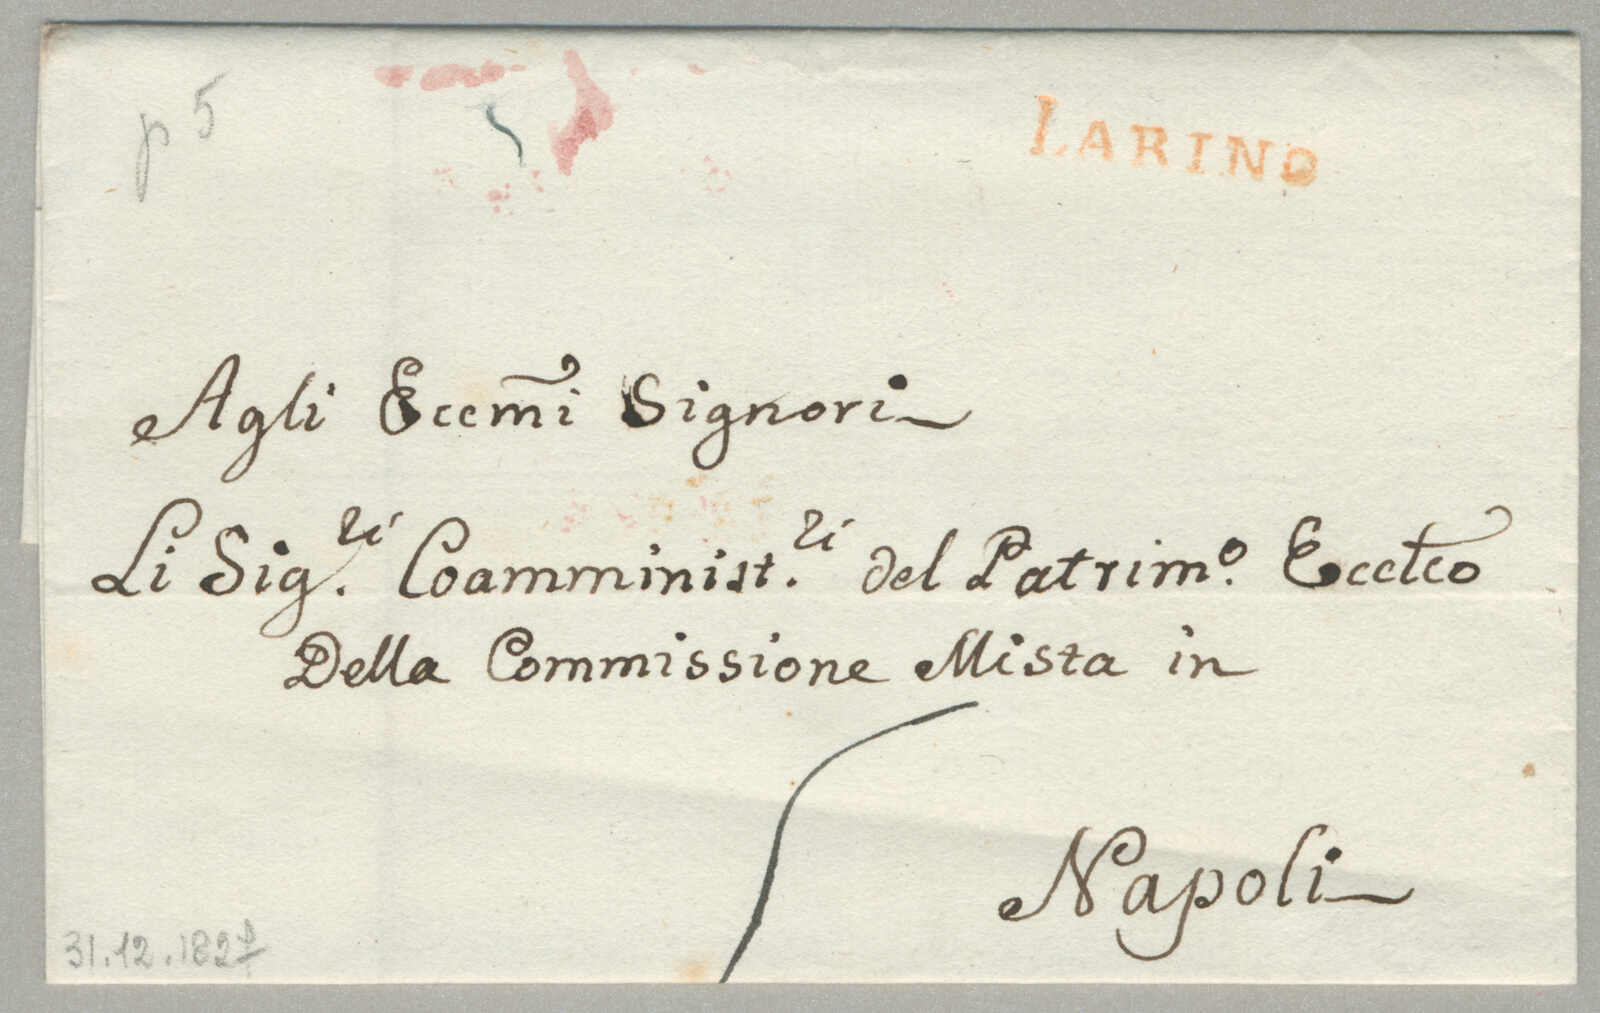 p 5
LARINO
Agli Eccm̃i Signori
Li Sig.ri Coamminist.ri del Patrim.o Eccl̃co
Della Commissione Mista in
Napoli